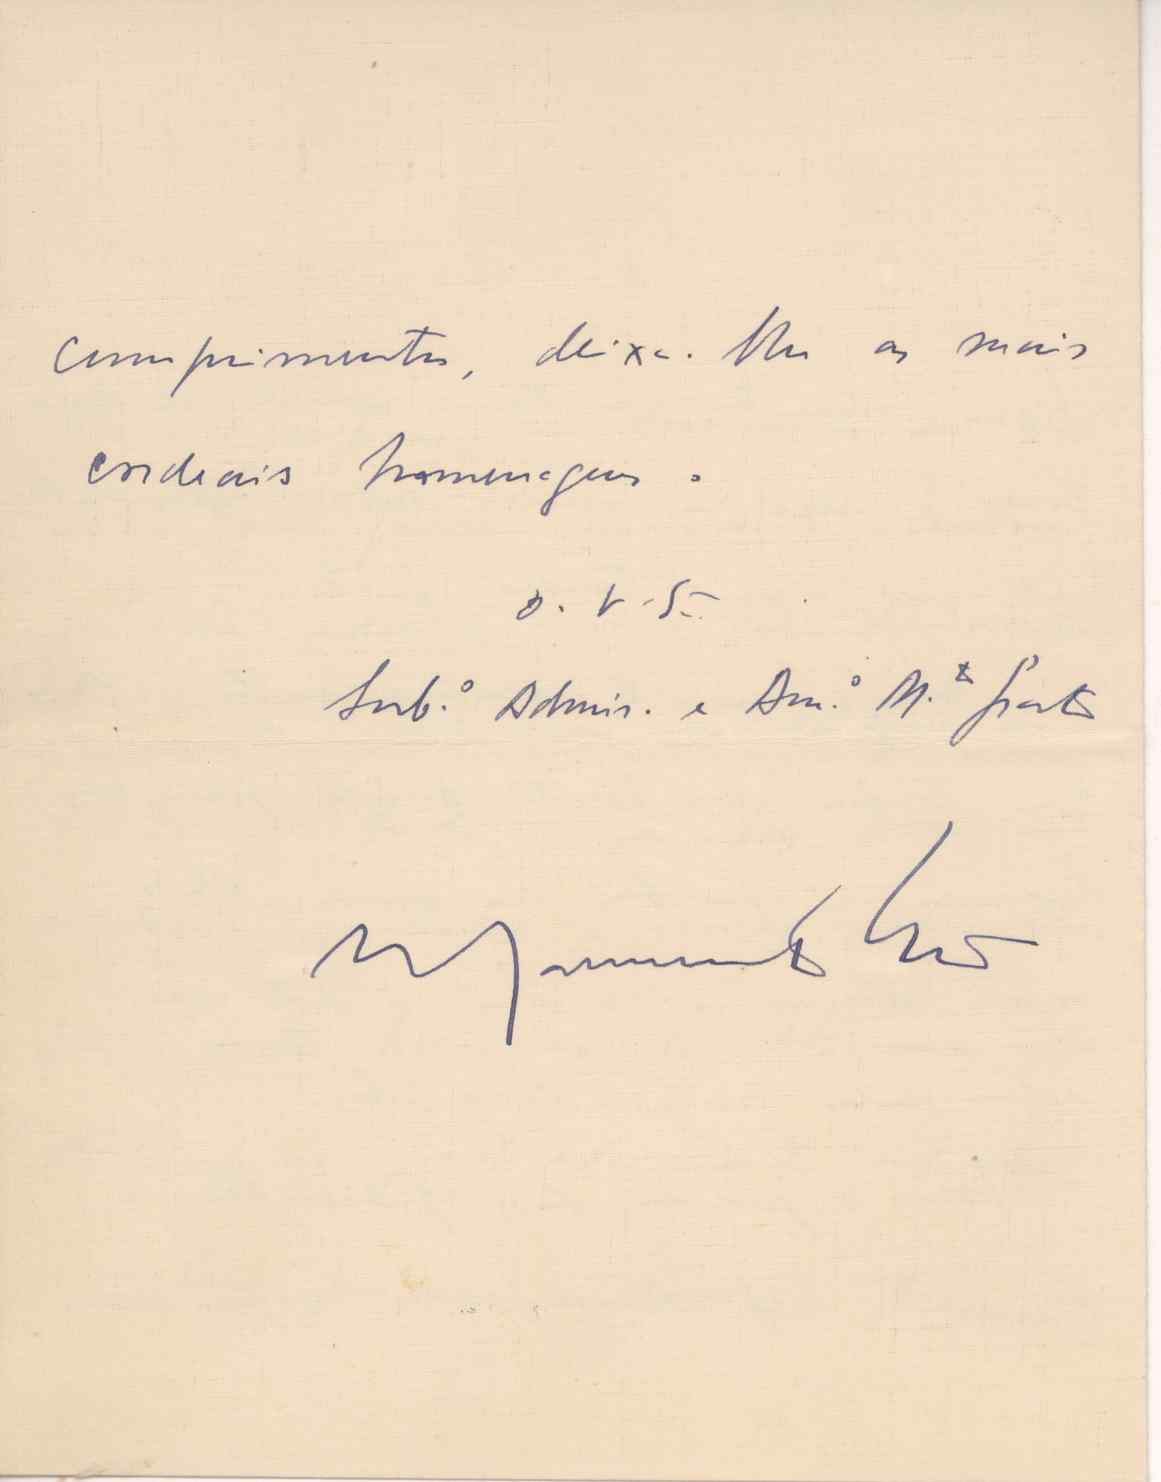 cumprimentos, deixa-lhe as mais
cordeais homenagens.
D. V. S.
Sub.º Admir. e Am.º M.to Grato